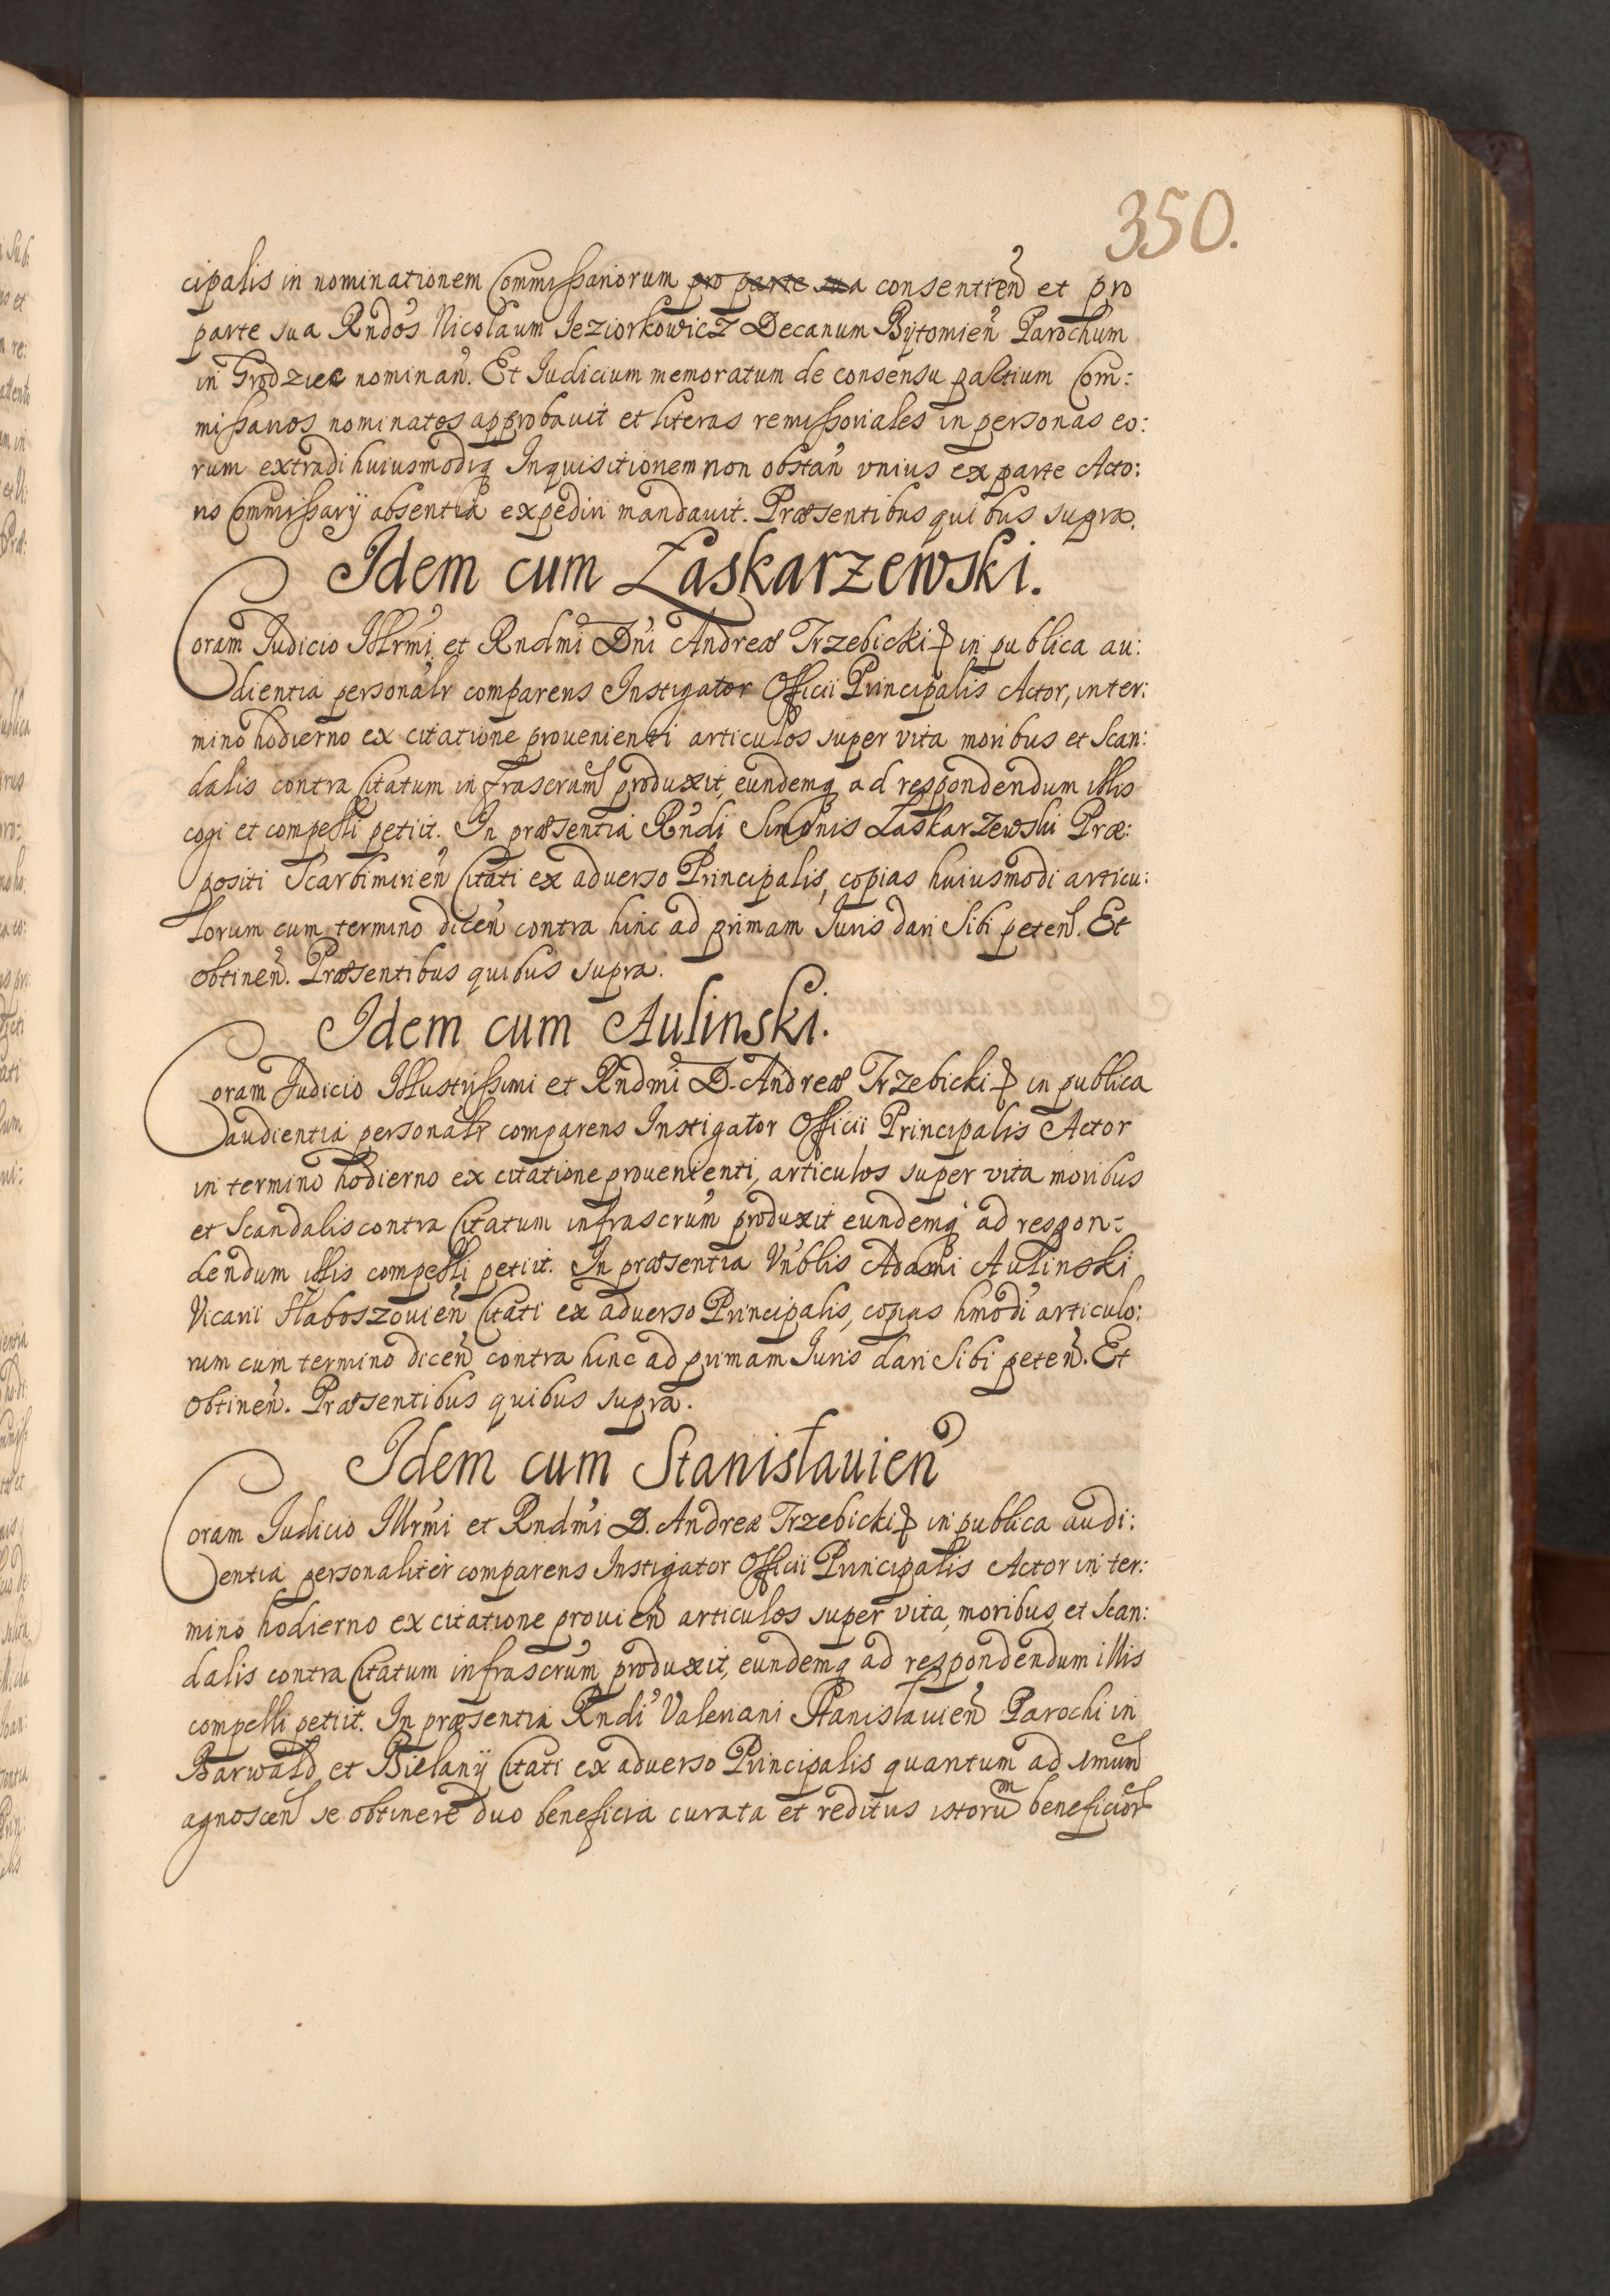 350.
cipalis in nominationem Commissariorum pro parte sua consentien̄ et pro
parte sua Rndos Nicolaum Jeziorkowicz Decanum Bytomien̄ Parochum
in Grodziec nominan̄. Et Judicium memoratum de consensu partium Com:
missarios nominatos approbauit et literas remissoriales in personas eo:
rum extradi huiusmodiq Inquisitionem non obstan̄ vnius ex parte Acto:
ris Commissarij absentia expediri mandauit. Præsentibus quibus supra.
Idem cum Łaskarzewski.
Coram Judicio Illrmi et Rndmi Dni Andreæ Trzebicki in publica au:
dientia personalr comparens Instigator Officii Principalis Actor, in ter:
mino hodierno ex citatione prouenienti articulos super vita moribus et Scan:
dalis contra Citatum infrascrum produxit, eundemq ad respondendum illis
cogi et compelli petiit. In præsentia Rndi Simonis Łaskarzewski Præ:
positi Scarbimirien̄ Citati ex aduerso Principalis, copias huiusmodi articu:
lorum cum termino dicen̄ contra hinc ad primam Juris dari Sibi peten̄. Et
obtinen̄. Præsentibus quibus supra.
Idem cum Aulinski.
Coram Judicio Illustrissimi et Rndmi D. Andreæ Trzebicki in publica
audientia personalr comparens Instigator Officii Principalis Actor
in termino hodierno ex citatione prouenienti, articulos super vita moribus
et Scandalis contra Citatum infrascrum produxit eundemq ad respon:
dendum illis compelli petiit. In præsentia Vnblis Adami Aulinski
Vicarii Slaboszouien̄ Citati ex aduerso Principalis, copias hmodi articulo:
rum cum termino dicen̄ contra hinc ad primam Juris dari Sibi peten̄. Et
obtinen̄. Præsentibus quibus supra.
Idem cum Stanisłauien̄
Coram Judicio Illrmi et Rndmi D. Andreæ Trzebicki in publica audi:
entia personaliter comparens Instigator Officii Principalis Actor in ter:
mino hodierno ex citatione prouien̄ articulos super vita, moribus et Scan:
dalis contra Citatum infrascrum produxit, eundemq ad respondendum illis
compelli petiit. In præsentia Rndi Valeriani Stanislauien̄ Parochi in
Barwałd et Bielany Citati ex aduerso Principalis quantum ad
agnoscen̄ se obtinere duo beneficia curata et reditus istorum beneficior